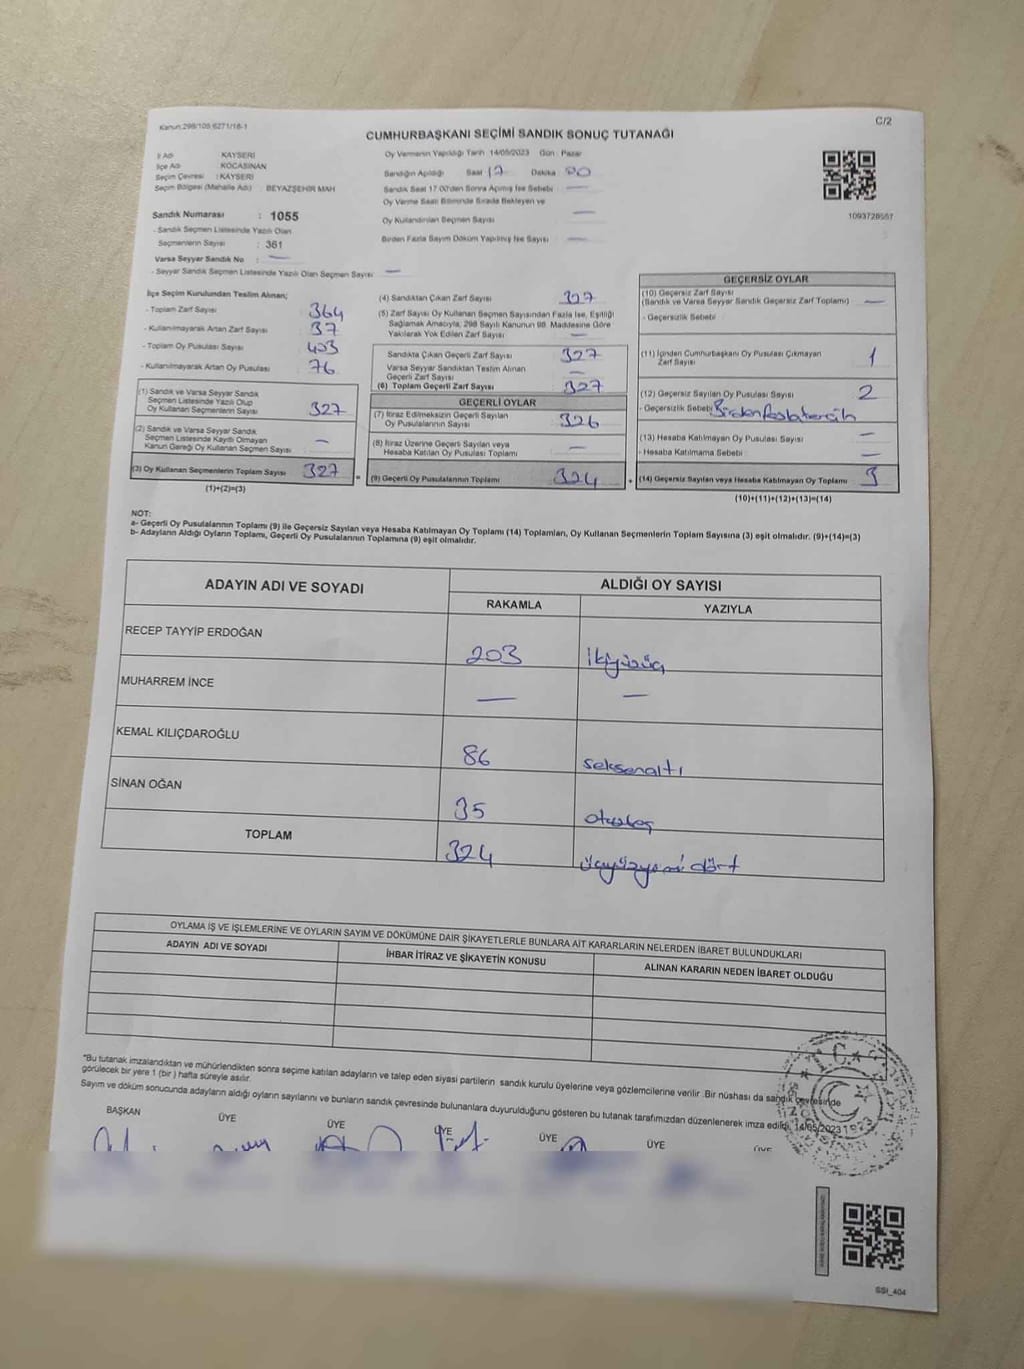 Kanun:298/105,6271/18-1
C/2
CUMHURBAŞKANI SEÇİMİ SANDIK SONUÇ TUTANAĞI
İl Adı KAYSERİ
İlçe Adı KOCASİNAN
Seçim Çevresi : KAYSERİ
Seçim Bölgesi (Mahalle Adı) : BEYAZŞEHİR MAH
Sandık Numarası : 1055
- Sandık Seçmen Listesinde Yazılı Olan
Seçmenlerin Sayısı : 361
Varsa Seyyar Sandık No : —
- Seyyar Sandık Seçmen Listesinde Yazılı Olan Seçmen Sayısı —
Oy Vermenin Yapıldığı Tarih :14/05/2023 Gün : Pazar
Sandığın Açıldığı Saat 17 Dakika 00
Sandık Saat 17.00'den Sonra Açımış İse Sebebi —
Oy Verme Saati Bitiminde Sırada Bekleyen ve
Oy Kullandırılan Seçmen Sayısı —
Birden Fazla Sayım Döküm Yapılmış İse Sayısı —
1093728557
İlçe Seçim Kurulundan Teslim Alınan;
- Toplam Zarf Sayısı 364
- Kullanılmayarak Artan Zarf Sayısı 37
- Toplam Oy Pusulası Sayısı 403
- Kullanılmayarak Artan Oy Pusulası 76
(1) Sandık ve Varsa Seyyar Sandık
Seçmen Listesinde Yazılı Olup
Oy Kullanan Seçmenlerin Sayısı 327
(2) Sandık ve Varsa Seyyar Sandık
Seçmen Listesinde Kayıtlı Olmayan
Kanun Gereği Oy Kullanan Seçmen Sayısı —
(3) Oy Kullanan Seçmenlerin Toplam Sayısı 327
(1)+(2)=(3)
(4) Sandıktan Çıkan Zarf Sayısı 327
(5) Zarf Sayısı Oy Kullanan Seçmen Sayısından Fazla İse, Eşitliği
Sağlamak Amacıyla, 298 Sayılı Kanunun 98. Maddesine Göre
Yakılarak Yok Edilen Zarf Sayısı —
Sandıkta Çıkan Geçerli Zarf Sayısı 327
Varsa Seyyar Sandıktan Teslim Alınan
Geçerli Zarf Sayısı —
(6) Toplam Geçerli Zarf Sayısı 327
GEÇERLİ OYLAR
(7) İtiraz Edilmeksizin Geçerli Sayılan
Oy Pusulalarının Sayısı 326
(8) İtiraz Üzerine Geçerli Sayılan veya
Hesaba Katılan Oy Pusulası Toplamı —
= (9) Geçerli Oy Pusulalarının Toplamı 324 +
GEÇERSİZ OYLAR
(10) Geçersiz Zarf Sayısı
(Sandık ve Varsa Seyyar Sandık Geçersiz Zarf Toplamı) —
- Geçersizlik Sebebi
(11) İçinden Cumhurbaşkanı Oy Pusulası Çıkmayan
Zarf Sayısı 1
(12) Geçersiz Sayılan Oy Pusulası Sayısı 2
- Geçersizlik Sebebi Birden fazla tercih
(13) Hesaba Katılmayan Oy Pusulası Sayısı —
- Hesaba Katılmama Sebebi —
(14) Geçersiz Sayılan veya Hesaba Katılmayan Oy Toplamı 3
(10)+(11)+(12)+(13)=(14)
NOT:
a- Geçerli Oy Pusulalarının Toplamı (9) ile Geçersiz Sayılan veya Hesaba Katılmayan Oy Toplamı (14) Toplamları, Oy Kullanan Seçmenlerin Toplam Sayısına (3) eşit olmalıdır. (9)+(14)=(3)
b- Adayların Aldığı Oyların Toplamı, Geçerli Oy Pusulalarının Toplamına (9) eşit olmalıdır.
ADAYIN ADI VE SOYADI ALDIĞI OY SAYISI
RAKAMLA YAZIYLA
RECEP TAYYİP ERDOĞAN 203 ikiyüzüç
MUHARREM İNCE — —
KEMAL KILIÇDAROĞLU 86 seksenaltı
SİNAN OĞAN 35 otuzbeş
TOPLAM 324 üçyüzyirmi dört
OYLAMA İŞ VE İŞLEMLERİNE VE OYLARIN SAYIM VE DÖKÜMÜNE DAİR ŞİKAYETLERLE BUNLARA AİT KARARLARIN NELERDEN İBARET BULUNDUKLARI
ADAYIN ADI VE SOYADI İHBAR İTİRAZ VE ŞİKAYETİN KONUSU ALINAN KARARIN NEDEN İBARET OLDUĞU
*Bu tutanak imzalandıktan ve mühürlendikten sonra seçime katılan adayların ve talep eden siyasi partilerin sandık kurulu üyelerine veya gözlemcilerine verilir. Bir nüshası da sandık çevresinde
görülecek bir yere 1 (bir ) hafta süreyle asılır.
Sayım ve döküm sonucunda adayların aldığı oyların sayılarını ve bunların sandık çevresinde bulunanlara duyurulduğunu gösteren bu tutanak tarafımızdan düzenlenerek imza edildi. 14/05/2023
BAŞKAN ÜYE ÜYE ÜYE ÜYE ÜYE ÜYE
SSI_404